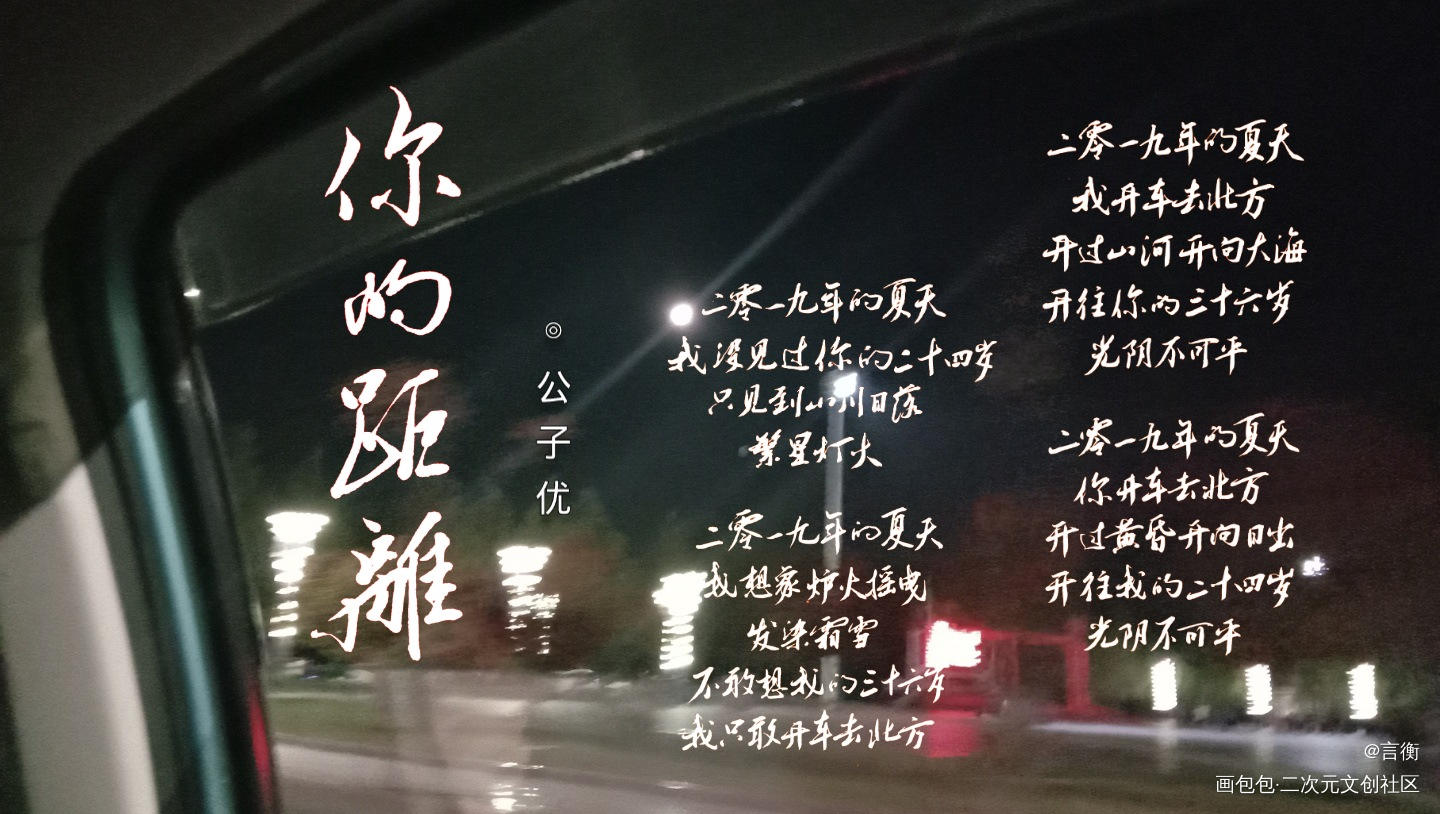 你的距離
◎公子优
二零一九年的夏天
我没见过你的二十四岁
只见到山川日落
繁星灯火
二零一九年的夏天
我想象炉火摇曳
发染霜雪
不敢想我的三十六岁
我只敢开车去北方
二零一九年的夏天
我开车去北方
开过山河开向大海
开往你的三十六岁
光阴不可平
二零一九年的夏天
你开车去北方
开过黄昏开向日出
开往我的二十四岁
光阴不可平
@言衡
画包包·二次元文创社区